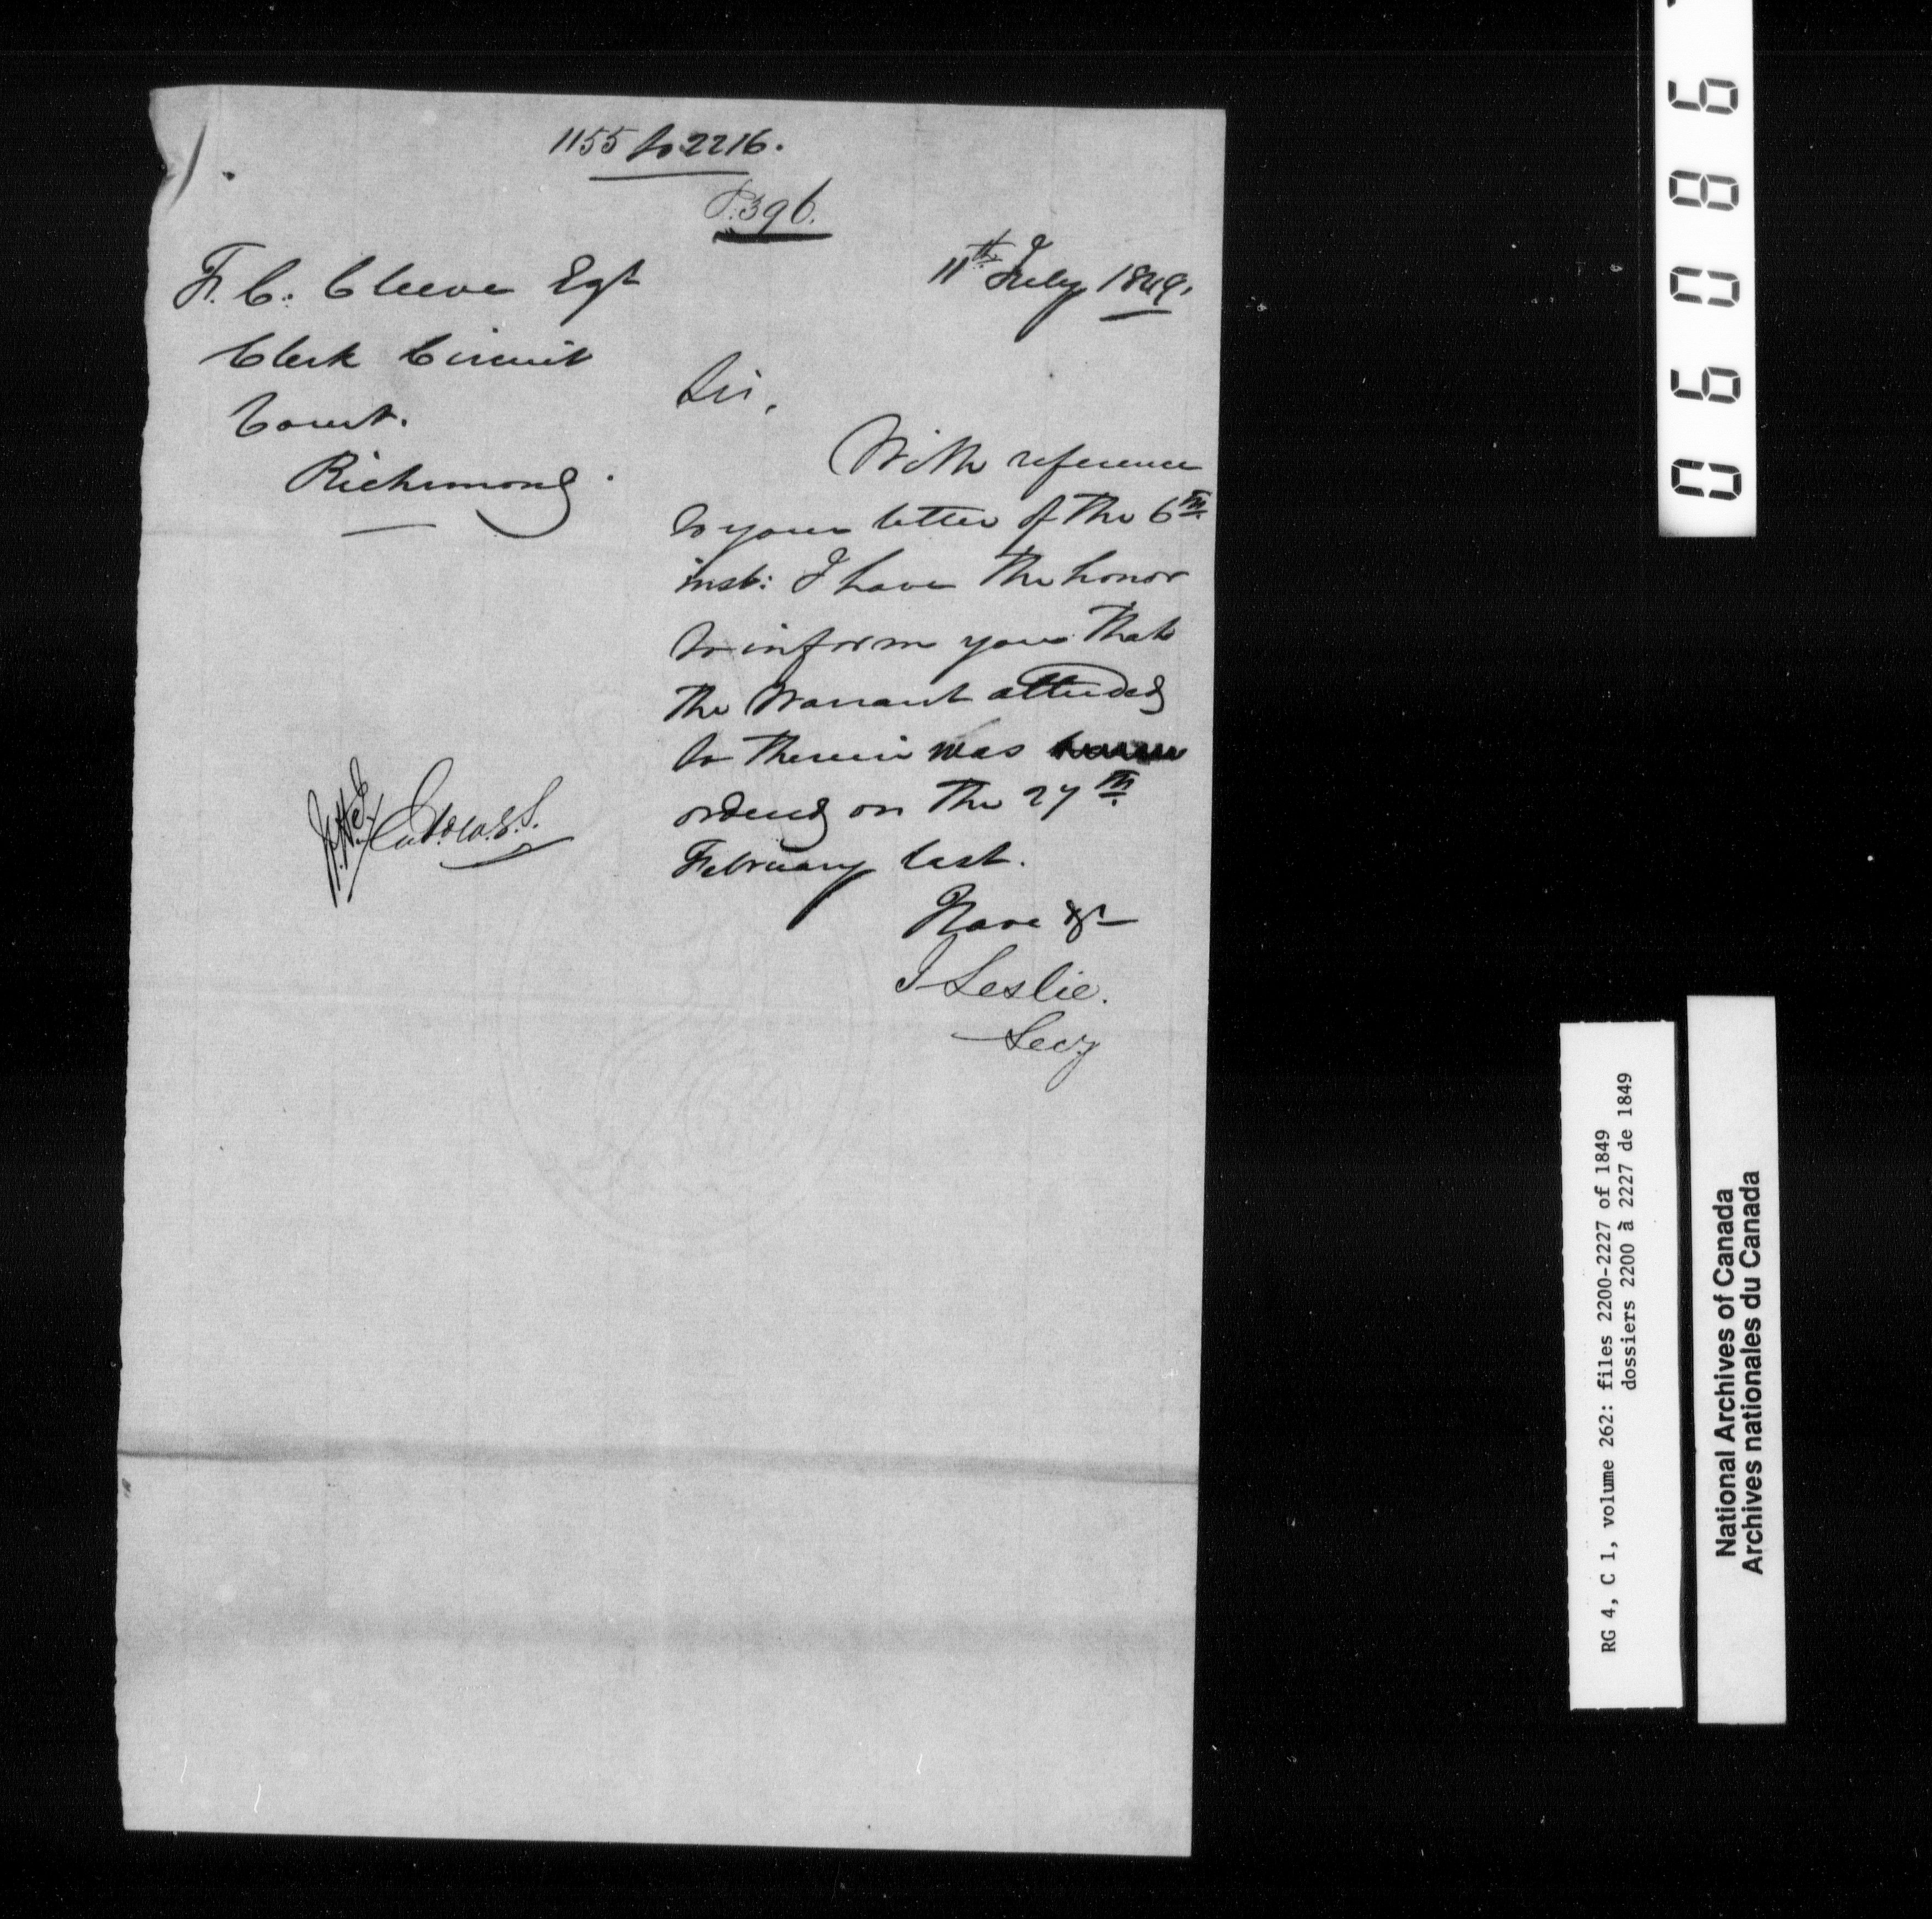 1155 to 2216.
P. 396.
11th July 1849.
F. C. Cleeve Esqr
Clerk Circuit
Court.
Richmond.
Sir,
With reference
to your letter of the 6th
inst: I have the honor
to inform you that
the Warrant alluded
to therein was
ordered on the 27th
February last.
Have &c
J Leslie.
Secy
06086
RG 4, C 1, volume 262: files 2200-2227 of 1849
dossiers 2200 à 2227 de 1849
National Archives of Canada
Archives nationales du Canada